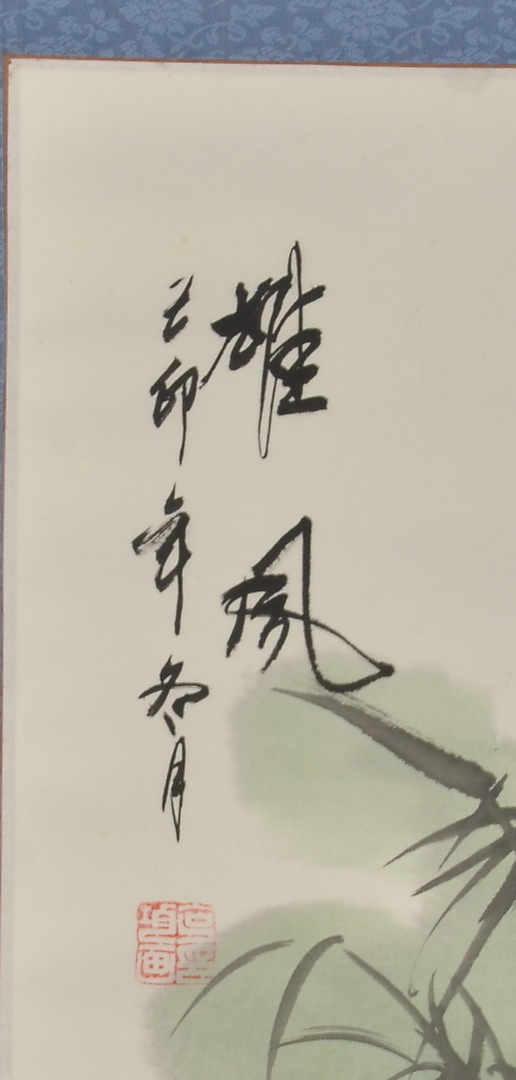 雄風
己卯年冬月